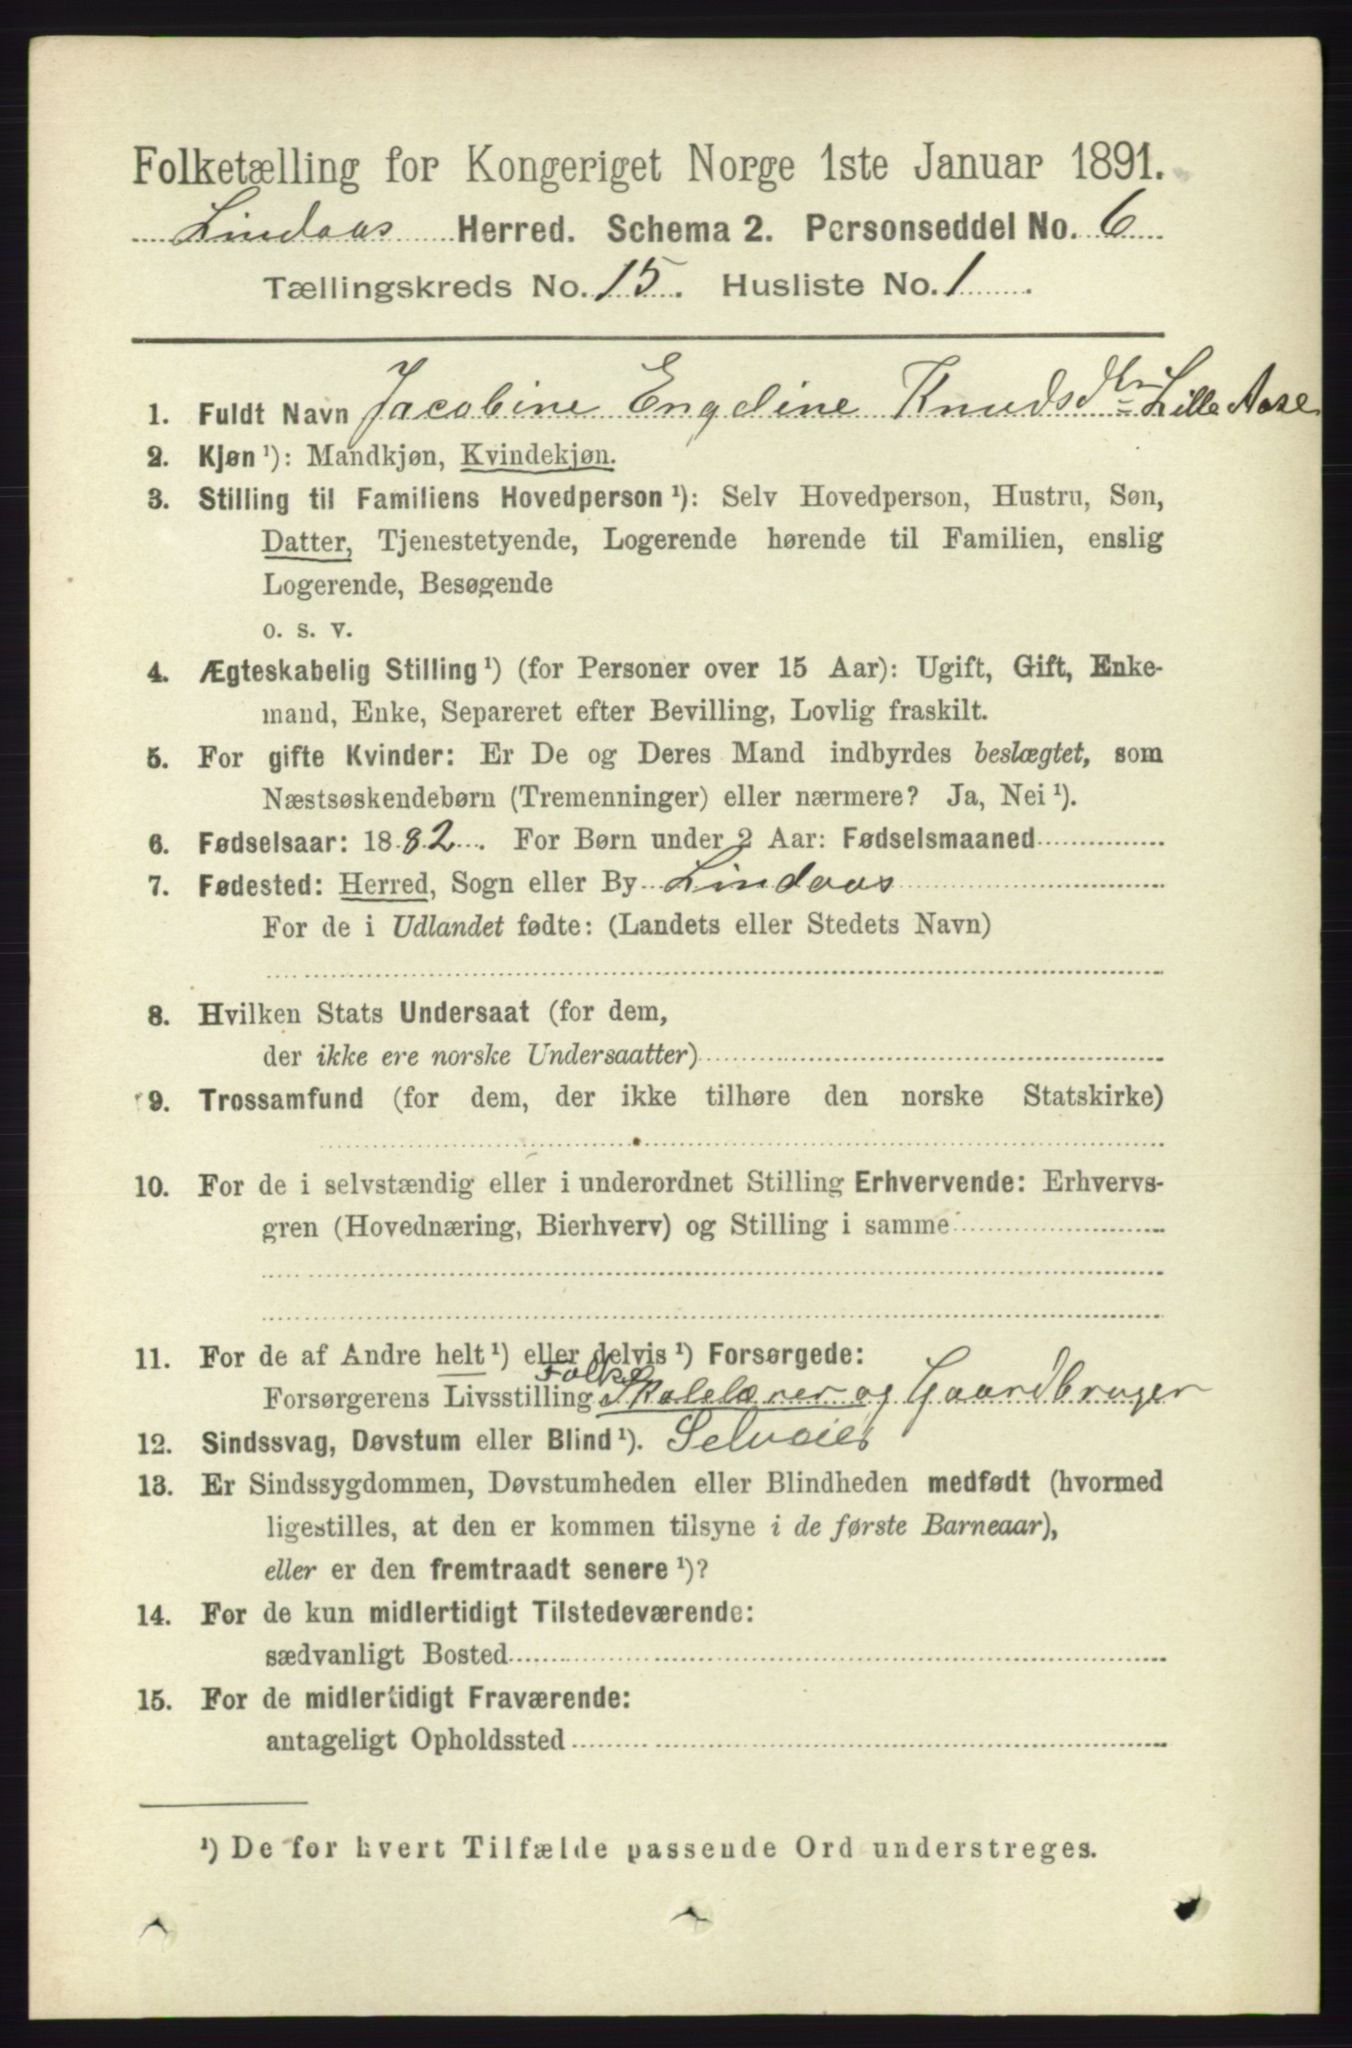 Folketælling for Kongeriget Norge 1ste Januar 1891.
Lindaas Herred. Schema 2. Personseddel No. 6
Tællingskreds No. 15. Husliste No. 1
1. Fuldt Navn Jacobine Engeline Knudsdtr Lille Aase
2. Kjøn ¹): Mandkjøn, Kvindekjøn.
3. Stilling til Familiens Hovedperson ¹): Selv Hovedperson, Hustru, Søn,
Datter, Tjenestetyende, Logerende hørende til Familien, enslig
Logerende, Besøgende
o. s. v.
4. Ægteskabelig Stilling ¹) (for Personer over 15 Aar): Ugift, Gift, Enke-
mand, Enke, Separeret efter Bevilling, Lovlig fraskilt.
5. For gifte Kvinder: Er De og Deres Mand indbyrdes beslægtet, som
Næstsøskendebørn (Tremenninger) eller nærmere? Ja, Nei ¹).
6. Fødselsaar: 1882. For Børn under 2 Aar: Fødselsmaaned
7. Fødested: Herred, Sogn eller By Lindaas
For de i Udlandet fødte: (Landets eller Stedets Navn)
8. Hvilken Stats Undersaat (for dem,
der ikke ere norske Undersaatter)
9. Trossamfund (for dem, der ikke tilhøre den norske Statskirke)
10. For de i selvstændig eller i underordnet Stilling Erhvervende: Erhvervs-
gren (Hovednæring, Bierhverv) og Stilling i samme
11. For de af Andre helt ¹) eller delvis ¹) Forsørgede:
Folke
Forsørgerens Livsstilling Skolelærer og Gaardbruger
12. Sindssvag, Døvstum eller Blind ¹). Selveier
13. Er Sindssygdommen, Døvstumheden eller Blindheden medfødt (hvormed
ligestilles, at den er kommen tilsyne i de første Barneaar),
eller er den fremtraadt senere ¹)?
14. For de kun midlertidigt Tilstedeværende:
sædvanligt Bosted
15. For de midlertidigt Fraværende:
antageligt Opholdssted
¹) De for hvert Tilfælde passende Ord understreges.